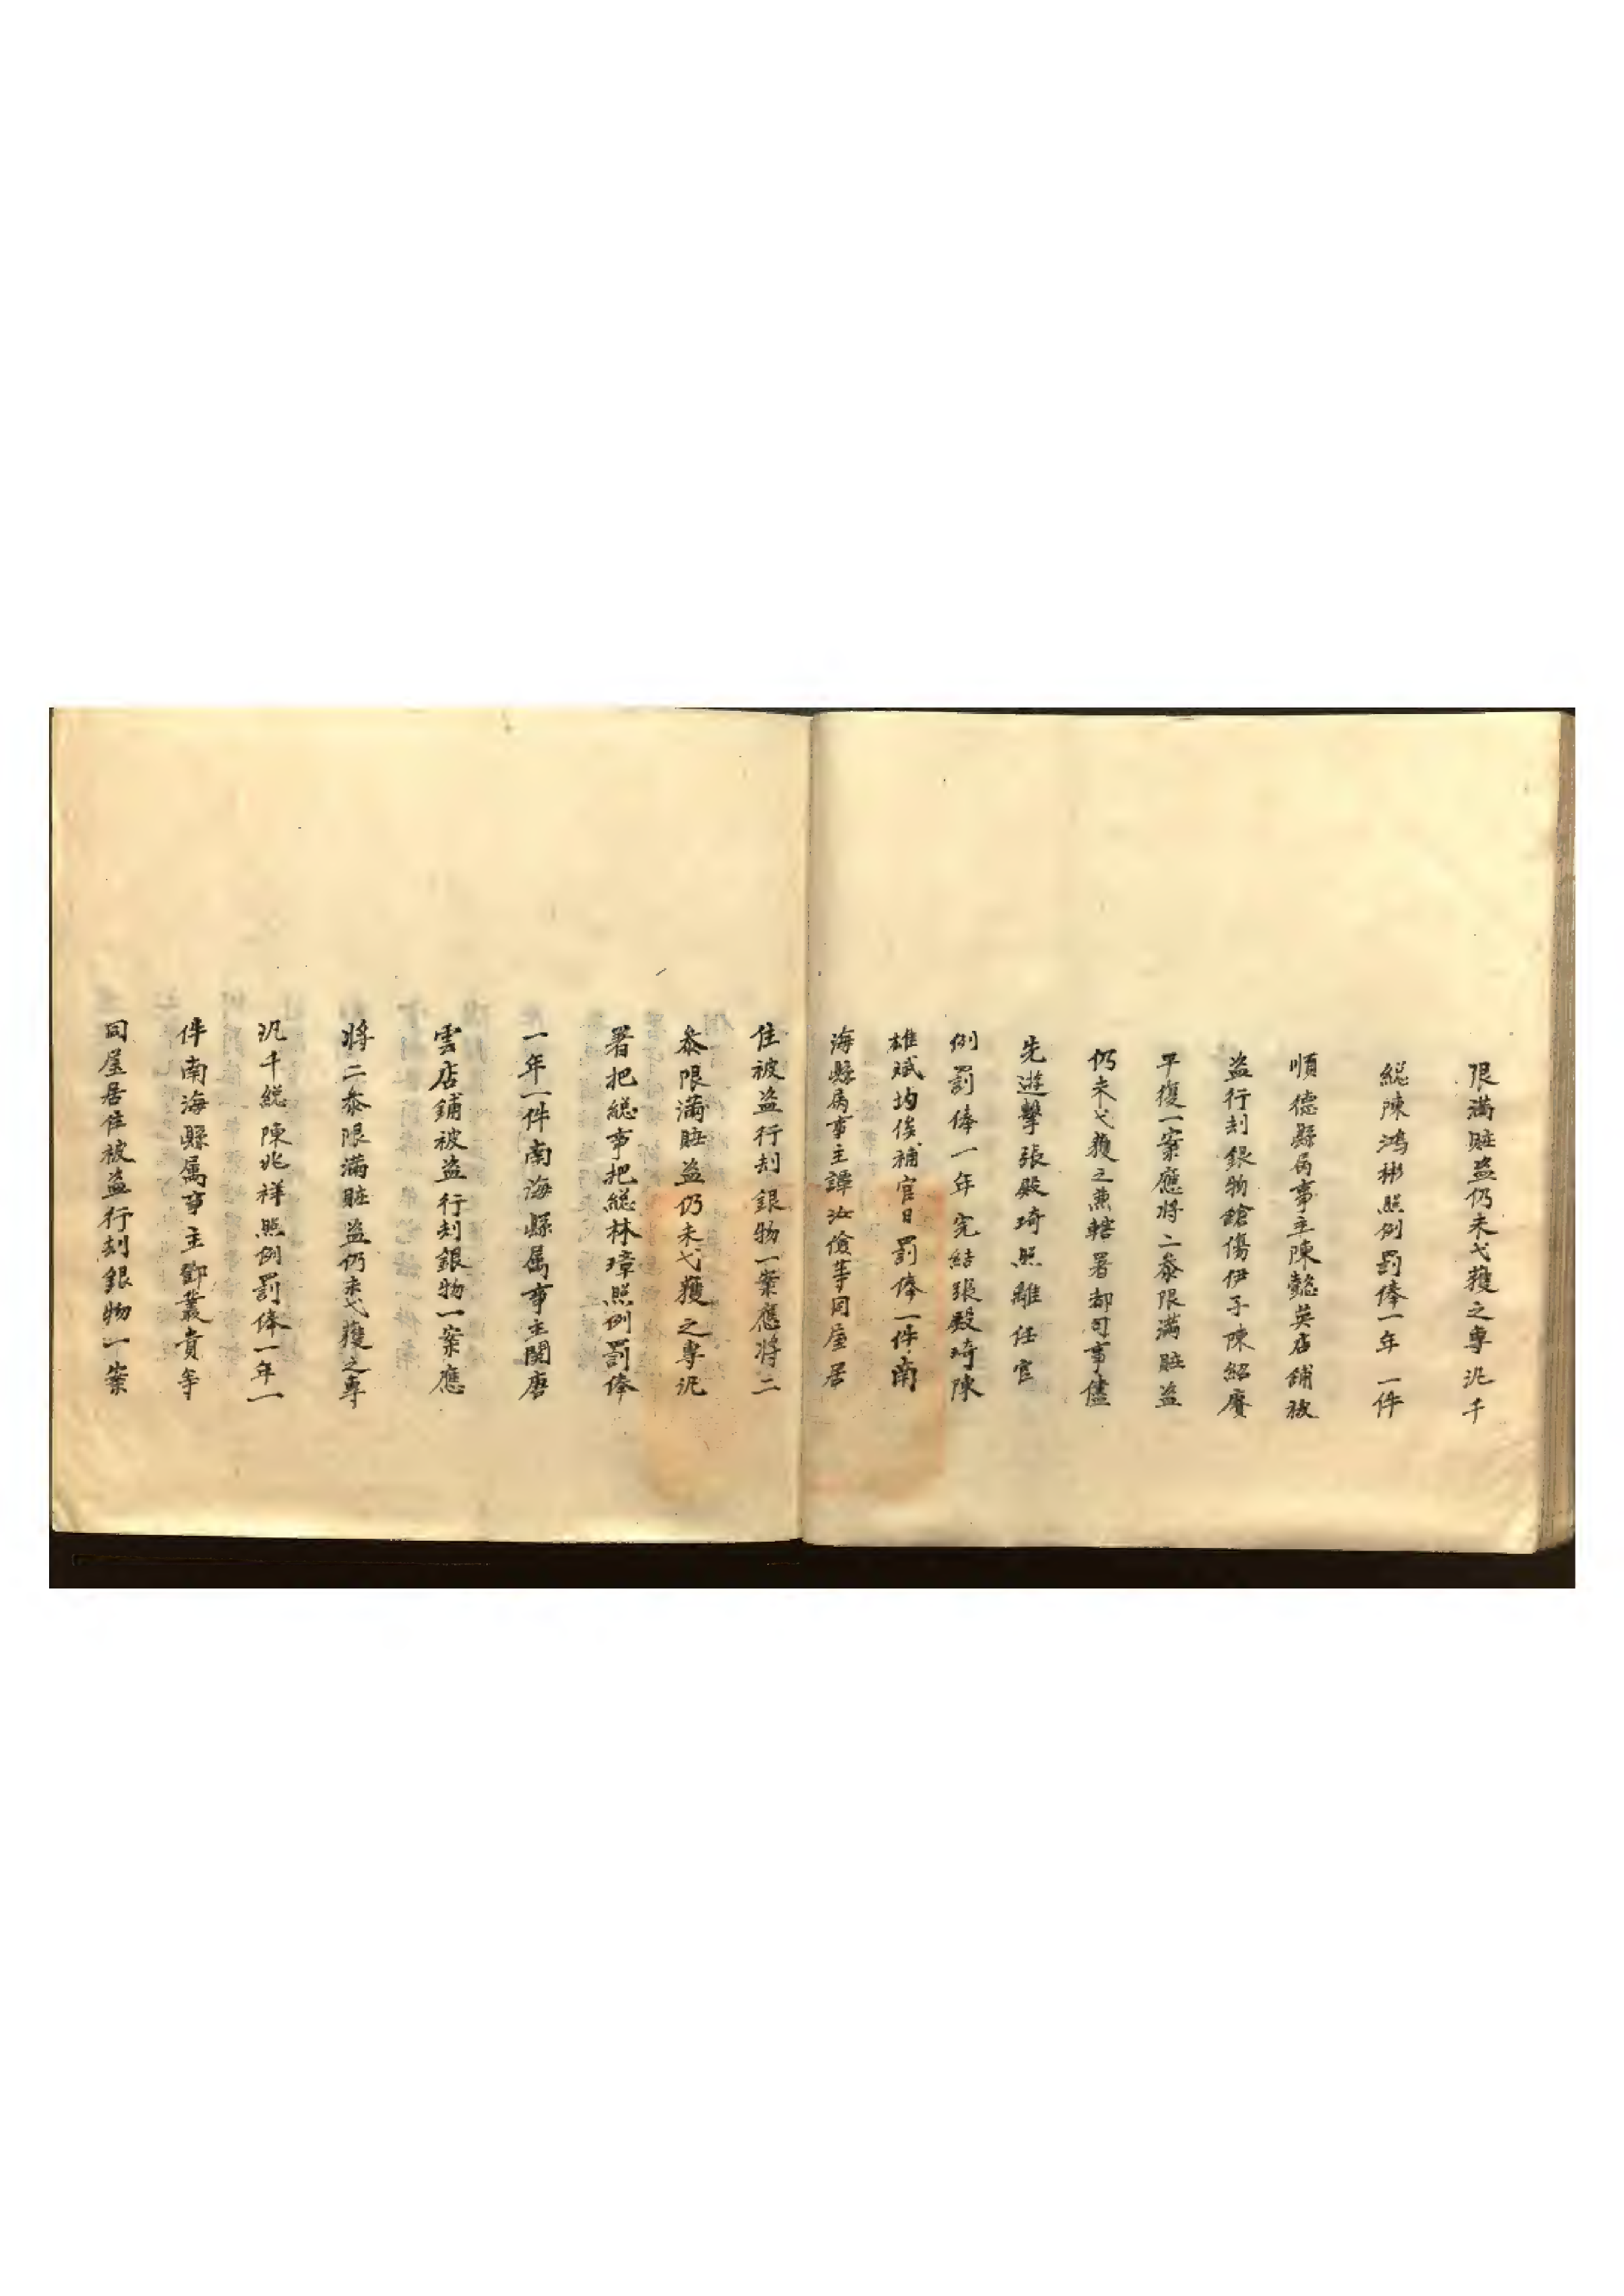 限滿賍盜仍未弋獲之專汎千
総陳鴻彬照例罰俸一年一件
順德縣屬事主陳懿英店鋪被
盜行刦銀物鎗傷伊子陳紹賡
平復一案應將二叅限滿賍盜
仍未弋獲之兼轄署都司事儘
先遊擊張殿琦照離任官
例罰俸一年完結張殿琦陳
雄斌均俟補官日罰俸一件南
海縣屬事主譚汝儉等同屋居
住被盜行刦銀物一案應將二
叅限滿賍盜仍未弋獲之專汎
署把総事把総林璋照例罰俸
一年一件南海縣属事主関唐
雲店鋪被盜行刦銀物一案應
將二叅限滿賍盜仍未弋獲之專
汎千総陳兆祥照例罰俸一年一
件南海縣属事主鄧叢貴等
同屋居住被盜行刦銀物一案